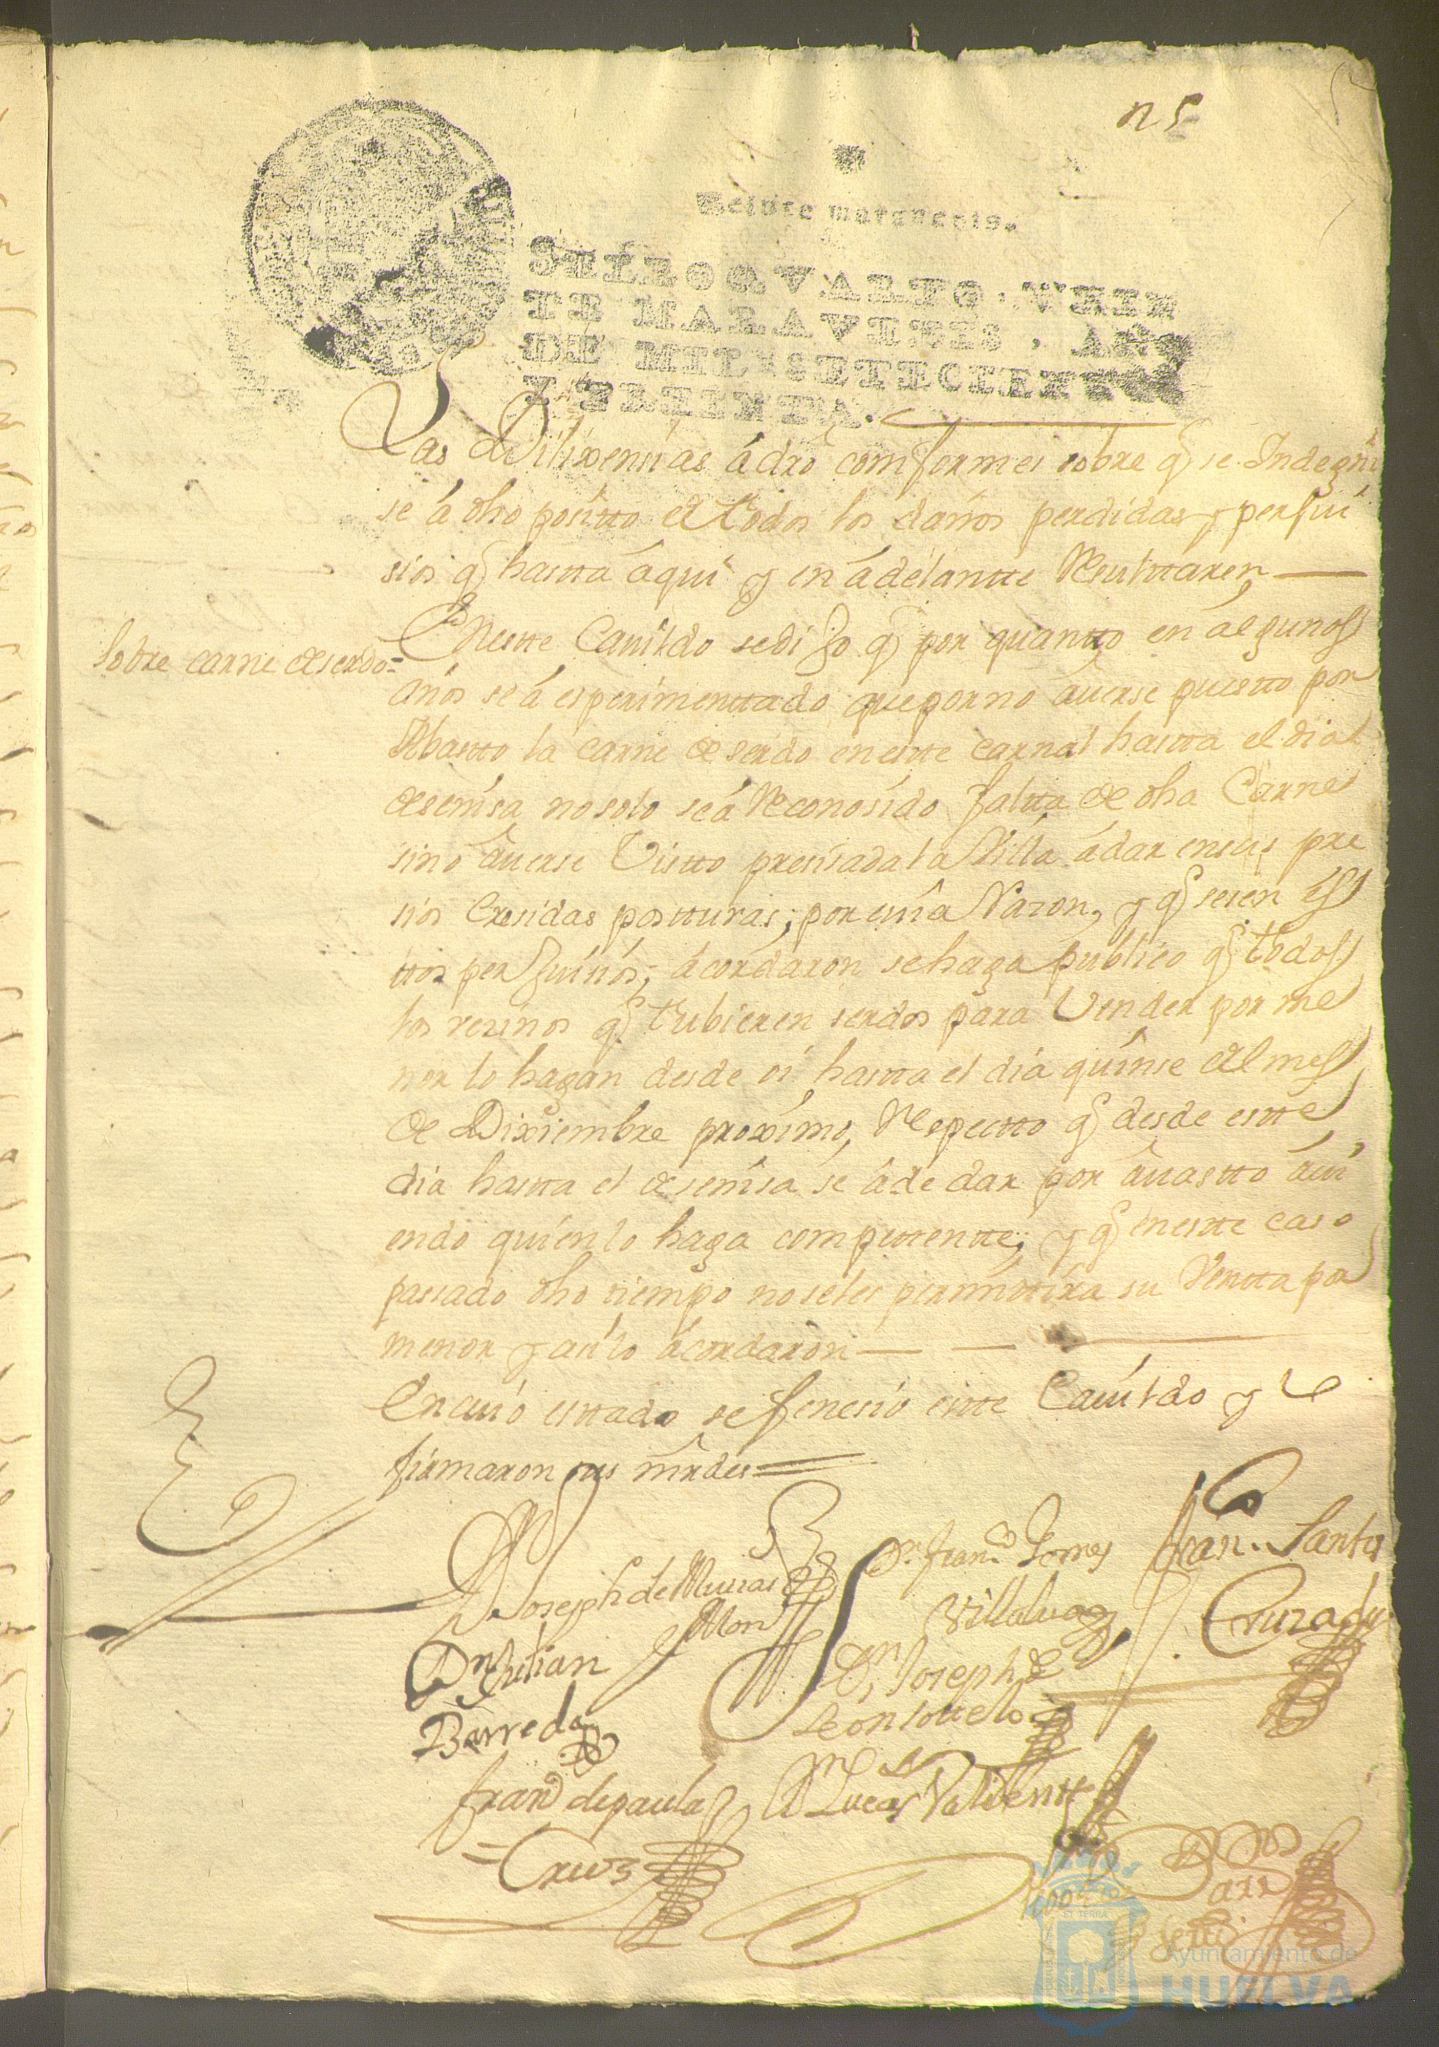 Veinte maravedis.
SELLO QVARTO, VEIN
TE MARAVEDIS, AÑO
DE MIL SETECIENTOS
Y TREINTA.
Las Dilixensias á dro comformes sobre q se Indegni
se á dho positto de todos los daños perdidas y perJui
sios q hastta áqui y en ádelantte Resulttaren
Sobre carne de serdo=
Eneste Cavildo se dijo q por quantto en álgunos
años se á esperimenttado que por no áverse puestto por
Abastto la carne de serdo en este carnal hastta el dia
de senisa no solo se á Reconosido faltta de dha Carne
sino áverse Vistto presisada la Villa á dar en sus pre
sios Cresidas postturas; por cuia Razon, y q sesen es
ttos perJuisios; ácordaron se haga publico q todos
los vezinos q tubieren serdos para Vender por me
nor lo hagan desde oi hastta el dia quinse del mes
de Diziembre proximo, Respectto q desde estte
dia hastta el de senisa se á de dar por ávastto ávi
endo quien lo haga competentte; y q en estte caso
passado dho tiempo no se les permittira su Ventta por
menor y asi lo ácordaron
En cuio esttado se fenesio estte Cavildo y
firmaron sus mrdes
Joseph de
Dn Fran.co Torres
Villalva
Fran. Santos
Cruzado
Dn Julian
Barreda
Dn Joseph de
Leon
Fran.co de paula
Cruz
Dn Lucas Valiente
Ayuntamiento de
HUELVA